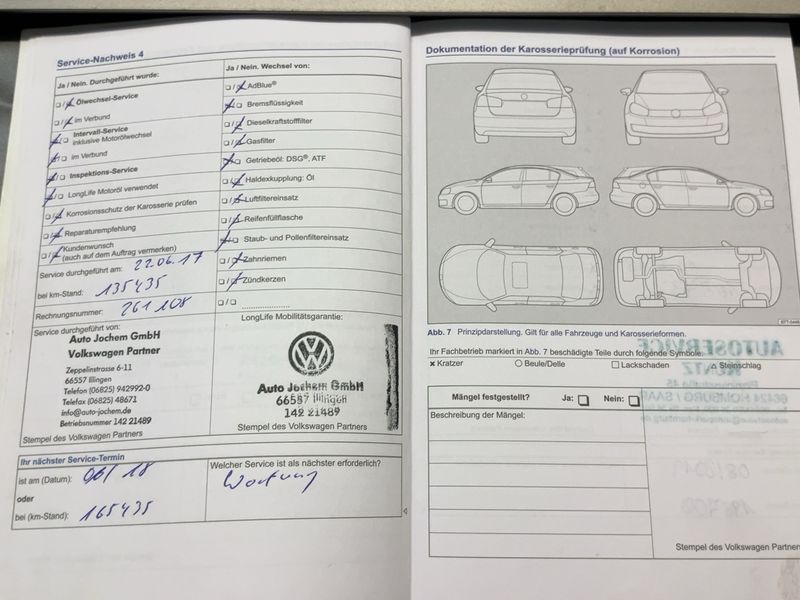 Service-Nachweis 4
Ja / Nein. Durchgeführt wurde:
Ölwechsel-Service
im Verbund
Intervall-Service
inklusive Motorölwechsel
im Verbund
Inspektions-Service
LongLife Motoröl verwendet
Korrosionsschutz der Karosserie prüfen
Reparaturempfehlung
Kundenwunsch
(auch auf dem Auftrag vermerken)
Service durchgeführt am: 22.06.17
bei km-Stand: 135435
Rechnungsnummer: 261108
Service durchgeführt von:
Auto Jochem GmbH
Volkswagen Partner
Zeppelinstrasse 6-11
66557 Illingen
Telefon (06825) 942992-0
Telefax (06825) 48671
info@auto-jochem.de
Betriebsnummer 142 21489
Stempel des Volkswagen Partners
Ja / Nein. Wechsel von:
AdBlue®
Bremsflüssigkeit
Dieselkraftstofffilter
Gasfilter
Getriebeöl: DSG®, ATF
Haldexkupplung: Öl
Luftfiltereinsatz
Reifenfüllflasche
Staub- und Pollenfiltereinsatz
Zahnriemen
Zündkerzen
LongLife Mobilitätsgarantie:
Auto Jochem GmbH
66557 Illingen
142 21489
Stempel des Volkswagen Partners
Ihr nächster Service-Termin
ist am (Datum): 06/18
oder
bei (km-Stand): 165435
Welcher Service ist als nächster erforderlich?
Wartung
Dokumentation der Karosserieprüfung (auf Korrosion)
Abb. 7 Prinzipdarstellung. Gilt für alle Fahrzeuge und Karosserieformen.
Ihr Fachbetrieb markiert in Abb. 7 beschädigte Teile durch folgende Symbole:
x Kratzer ○ Beule/Delle □ Lackschaden △ Steinschlag
Mängel festgestellt? Ja: □ Nein: □
Beschreibung der Mängel:
Stempel des Volkswagen Partners